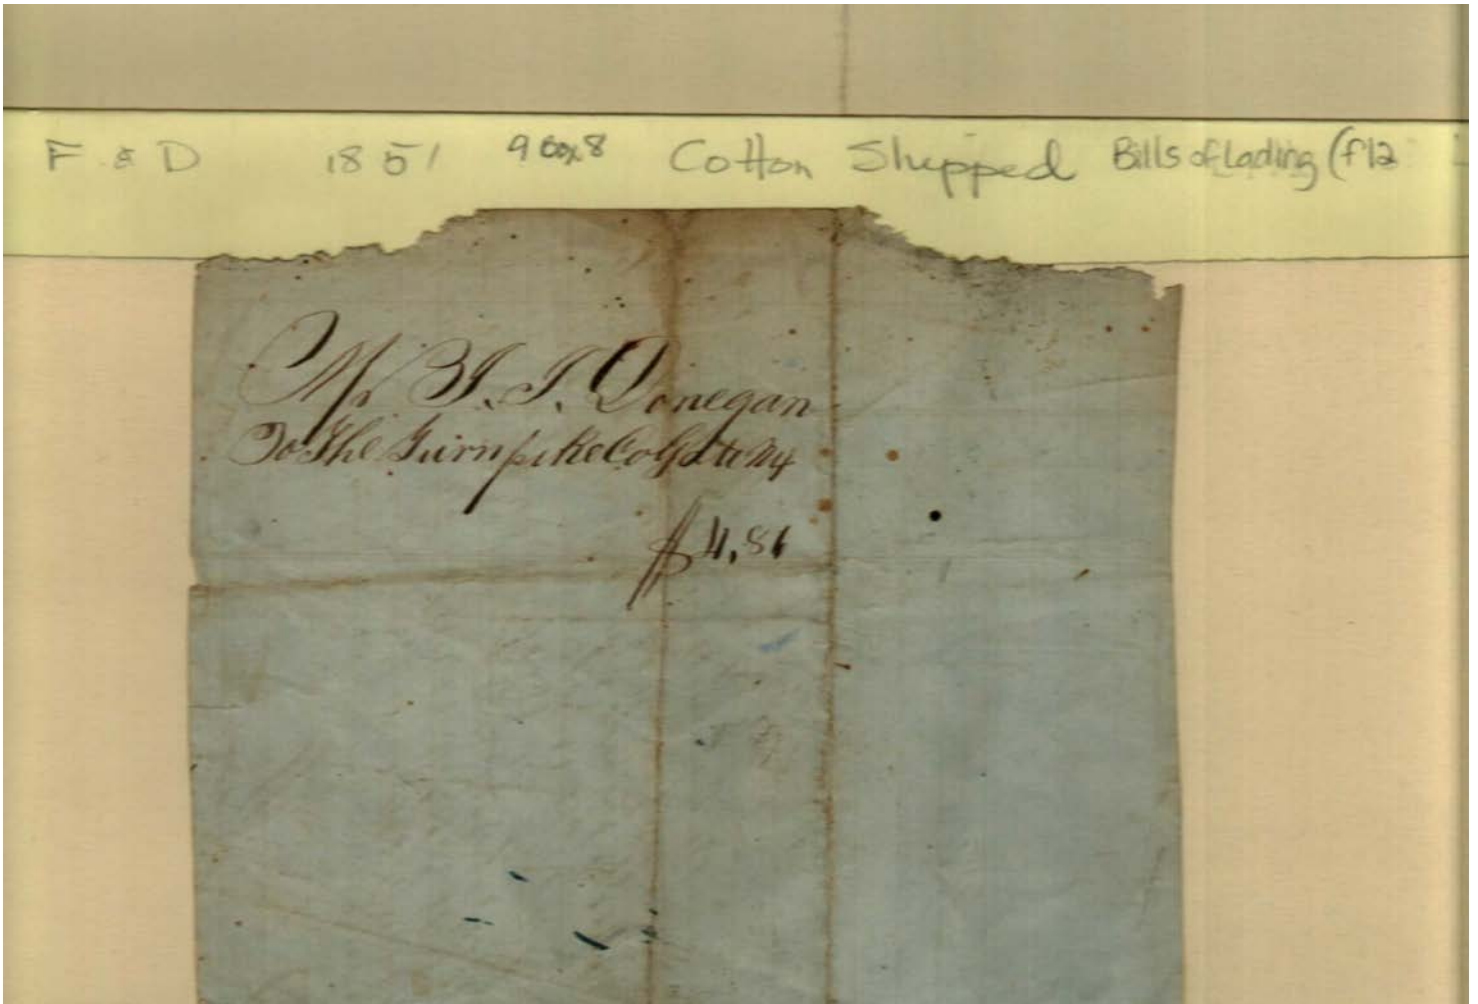 F & D 1851 9 box 8 Cotton Shipped Bills of Lading (f12
Mr J. J. Donegan
To The Turnpike Co
$4,86